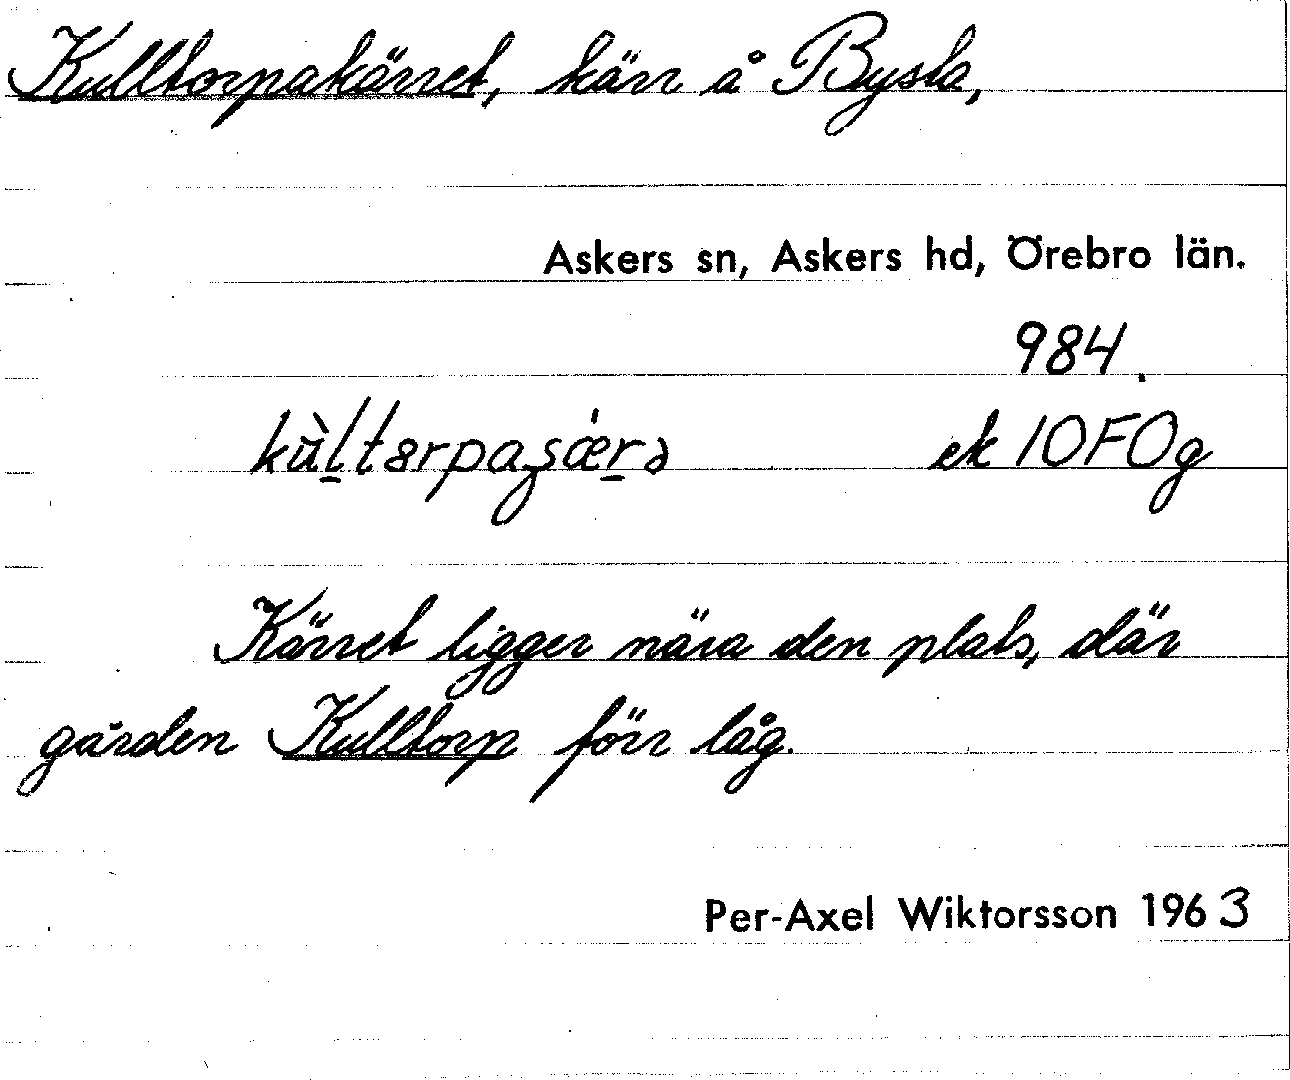 Kulltorpakärret, kärr å Bysta,
Askers sn, Askers hd, Örebro län.
984.
kùl̲tɞrpaʂǽr̲ə ek 10FÖg
Kärret ligger nära den plats, där
gården Kulltorp förr låg.
Per-Axel Wiktorsson 1963